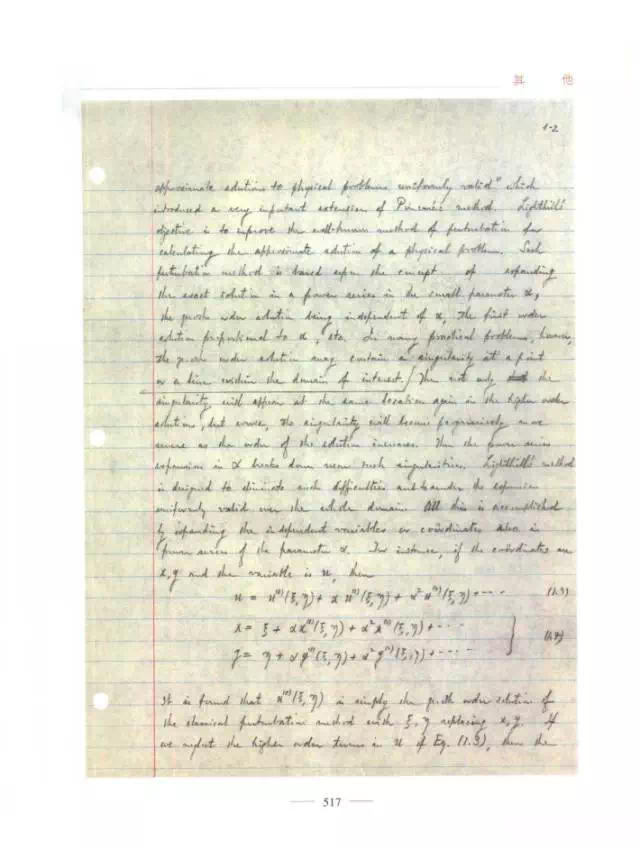 其 他
1-2
approximate solutions to physical problems uniformly valid" which
introduced a very important extension of Poincaré's method. Lighthill's
objective is to improve the well-known method of perturbation for
calculating the approximate solution of a physical problem. Such
perturbation method is based upon the concept of expanding
the exact solution in a power series in the small parameter α,
the zeroth order solution being independent of α, the first order
solution proportional to α, etc. In many practical problems, however,
the zeroth order solution may contain a singularity at a point
or a line within the domain of interest. / Then not only the
singularity will appear at the same location again in the higher order
solutions, but worse, the singularity will become progressively more
severe as the order of the solution increases. Then the power series
expansion in α breaks down near such singularities. Lighthill's method
is designed to eliminate such difficulties and to render the expansion
uniformly valid over the whole domain. All this is accomplished
by expanding the independent variables or coördinates also in
power series of the parameter α. For instance, if the coördinates are
x, y and the variable is u, then
u = u⁽⁰⁾(ξ,η) + α u⁽¹⁾(ξ,η) + α² u⁽²⁾(ξ,η) + ---- (1.3)
x = ξ + αx⁽¹⁾(ξ,η) + α²x⁽²⁾(ξ,η) + ----
y = η + αy⁽¹⁾(ξ,η) + α²y⁽²⁾(ξ,η) + ---- } (1.4)
It is found that u⁽⁰⁾(ξ,η) is simply the zeroth order solution of
the classical perturbation method with ξ, η replacing x, y. If
we neglect the higher order terms in u of Eq. (1.3), then the
517